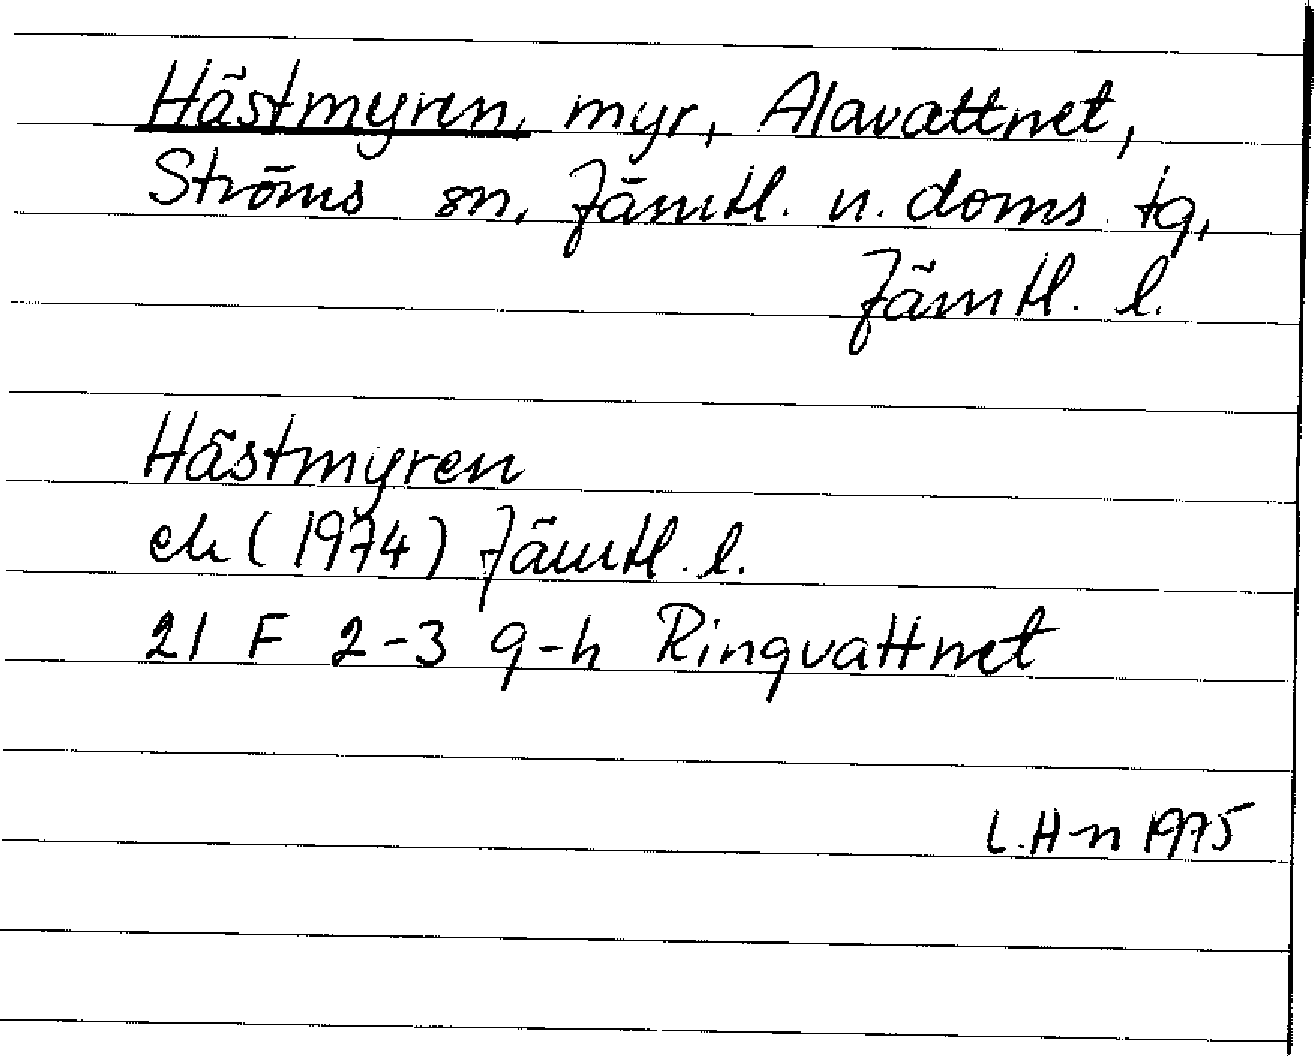 Hästmyren, myr, Alavattnet,
Ströms sn, Jämtl. n. doms. tg,
Jämtl. l.
Hästmyren
ek (1974) Jämtl. l.
21 F 2-3 g-h Ringvattnet
L.H-n 1975